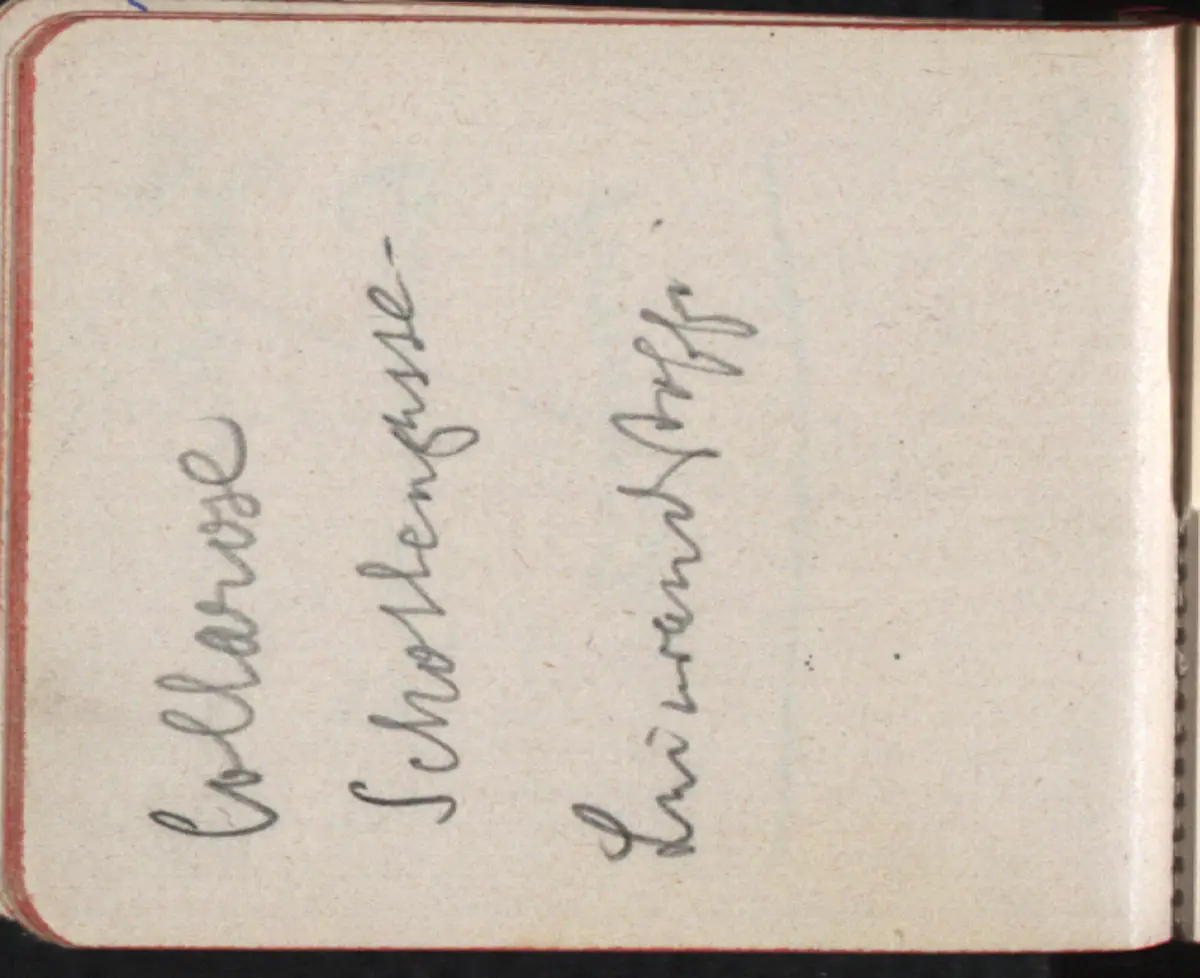 Collarose
Schottengasse-
Leinwandstoffe.